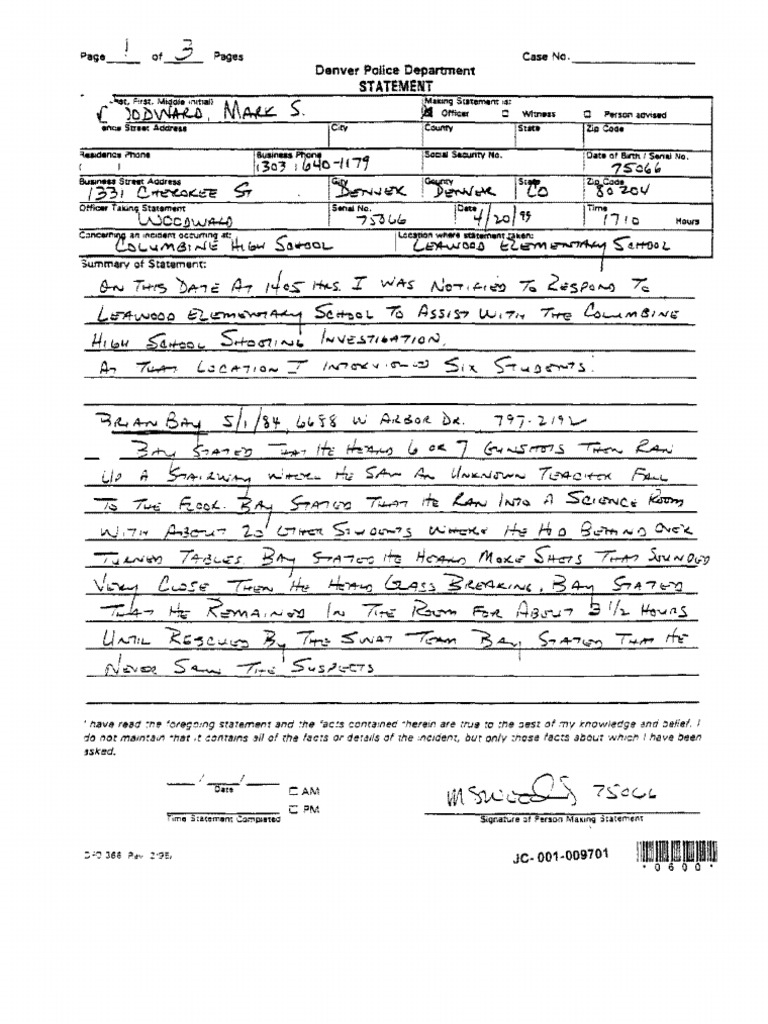 Page 1 of 3 Pages Case No.
Denver Police Department
STATEMENT
First, Middle Initial) Making Statement is:
WOODWARD, MARK S. Officer Witness Person advised
Street Address City County State Zip Code
Residence Phone Business Phone Social Security No. Date of Birth / Serial No.
( ) (303) 640-1179 75066
Business Street Address City County State Zip Code
1331 CHEROKEE ST DENVER DENVER CO 80204
Officer Taking Statement Serial No. Date Time
WOODWARD 75066 4/20/99 1710 Hours
Concerning an incident occurring at: Location where statement taken:
COLUMBINE HIGH SCHOOL LEAWOOD ELEMENTARY SCHOOL
Summary of Statement:
ON THIS DATE AT 1405 HRS. I WAS NOTIFIED TO RESPOND TO
LEAWOOD ELEMENTARY SCHOOL TO ASSIST WITH THE COLUMBINE
HIGH SCHOOL SHOOTING INVESTIGATION.
AT THAT LOCATION I INTERVIEWED SIX STUDENTS:
BRIAN BAY 5/1/84, 6688 W ARBOR DR. 797-2192
BAY STATED THAT HE HEARD 6 OR 7 GUNSHOTS THEN RAN
UP A STAIRWAY WHERE HE SAW AN UNKNOWN TEACHER FALL
TO THE FLOOR. BAY STATED THAT HE RAN INTO A SCIENCE ROOM
WITH ABOUT 20 OTHER STUDENTS WHERE HE HID BEHIND OVER
TURNED TABLES. BAY STATED HE HEARD MORE SHOTS THAT SOUNDED
VERY CLOSE THEN HE HEARD GLASS BREAKING. BAY STATED
THAT HE REMAINED IN THE ROOM FOR ABOUT 3 1/2 HOURS
UNTIL RESCUED BY THE SWAT TEAM BAY STATED THAT HE
NEVER SAW THE SUSPECTS
I have read the foregoing statement and the facts contained therein are true to the best of my knowledge and belief. I
do not maintain that it contains all of the facts or details of the incident, but only those facts about which I have been
asked.
/ /
Date AM
PM 75066
Time Statement Completed Signature of Person Making Statement
DPD 366 Rev. JC-001-009701
• 0600 •